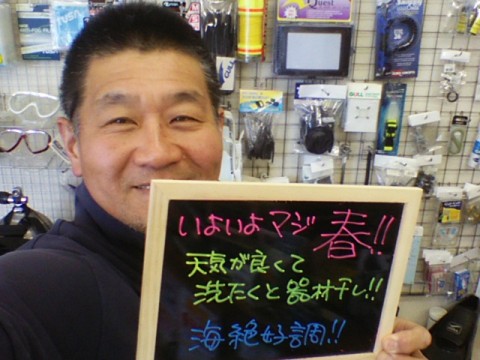 いよいよマジ 春!!
天気が良くて
洗たくと器材干し!!
海絶好調!!
Quest
GULL